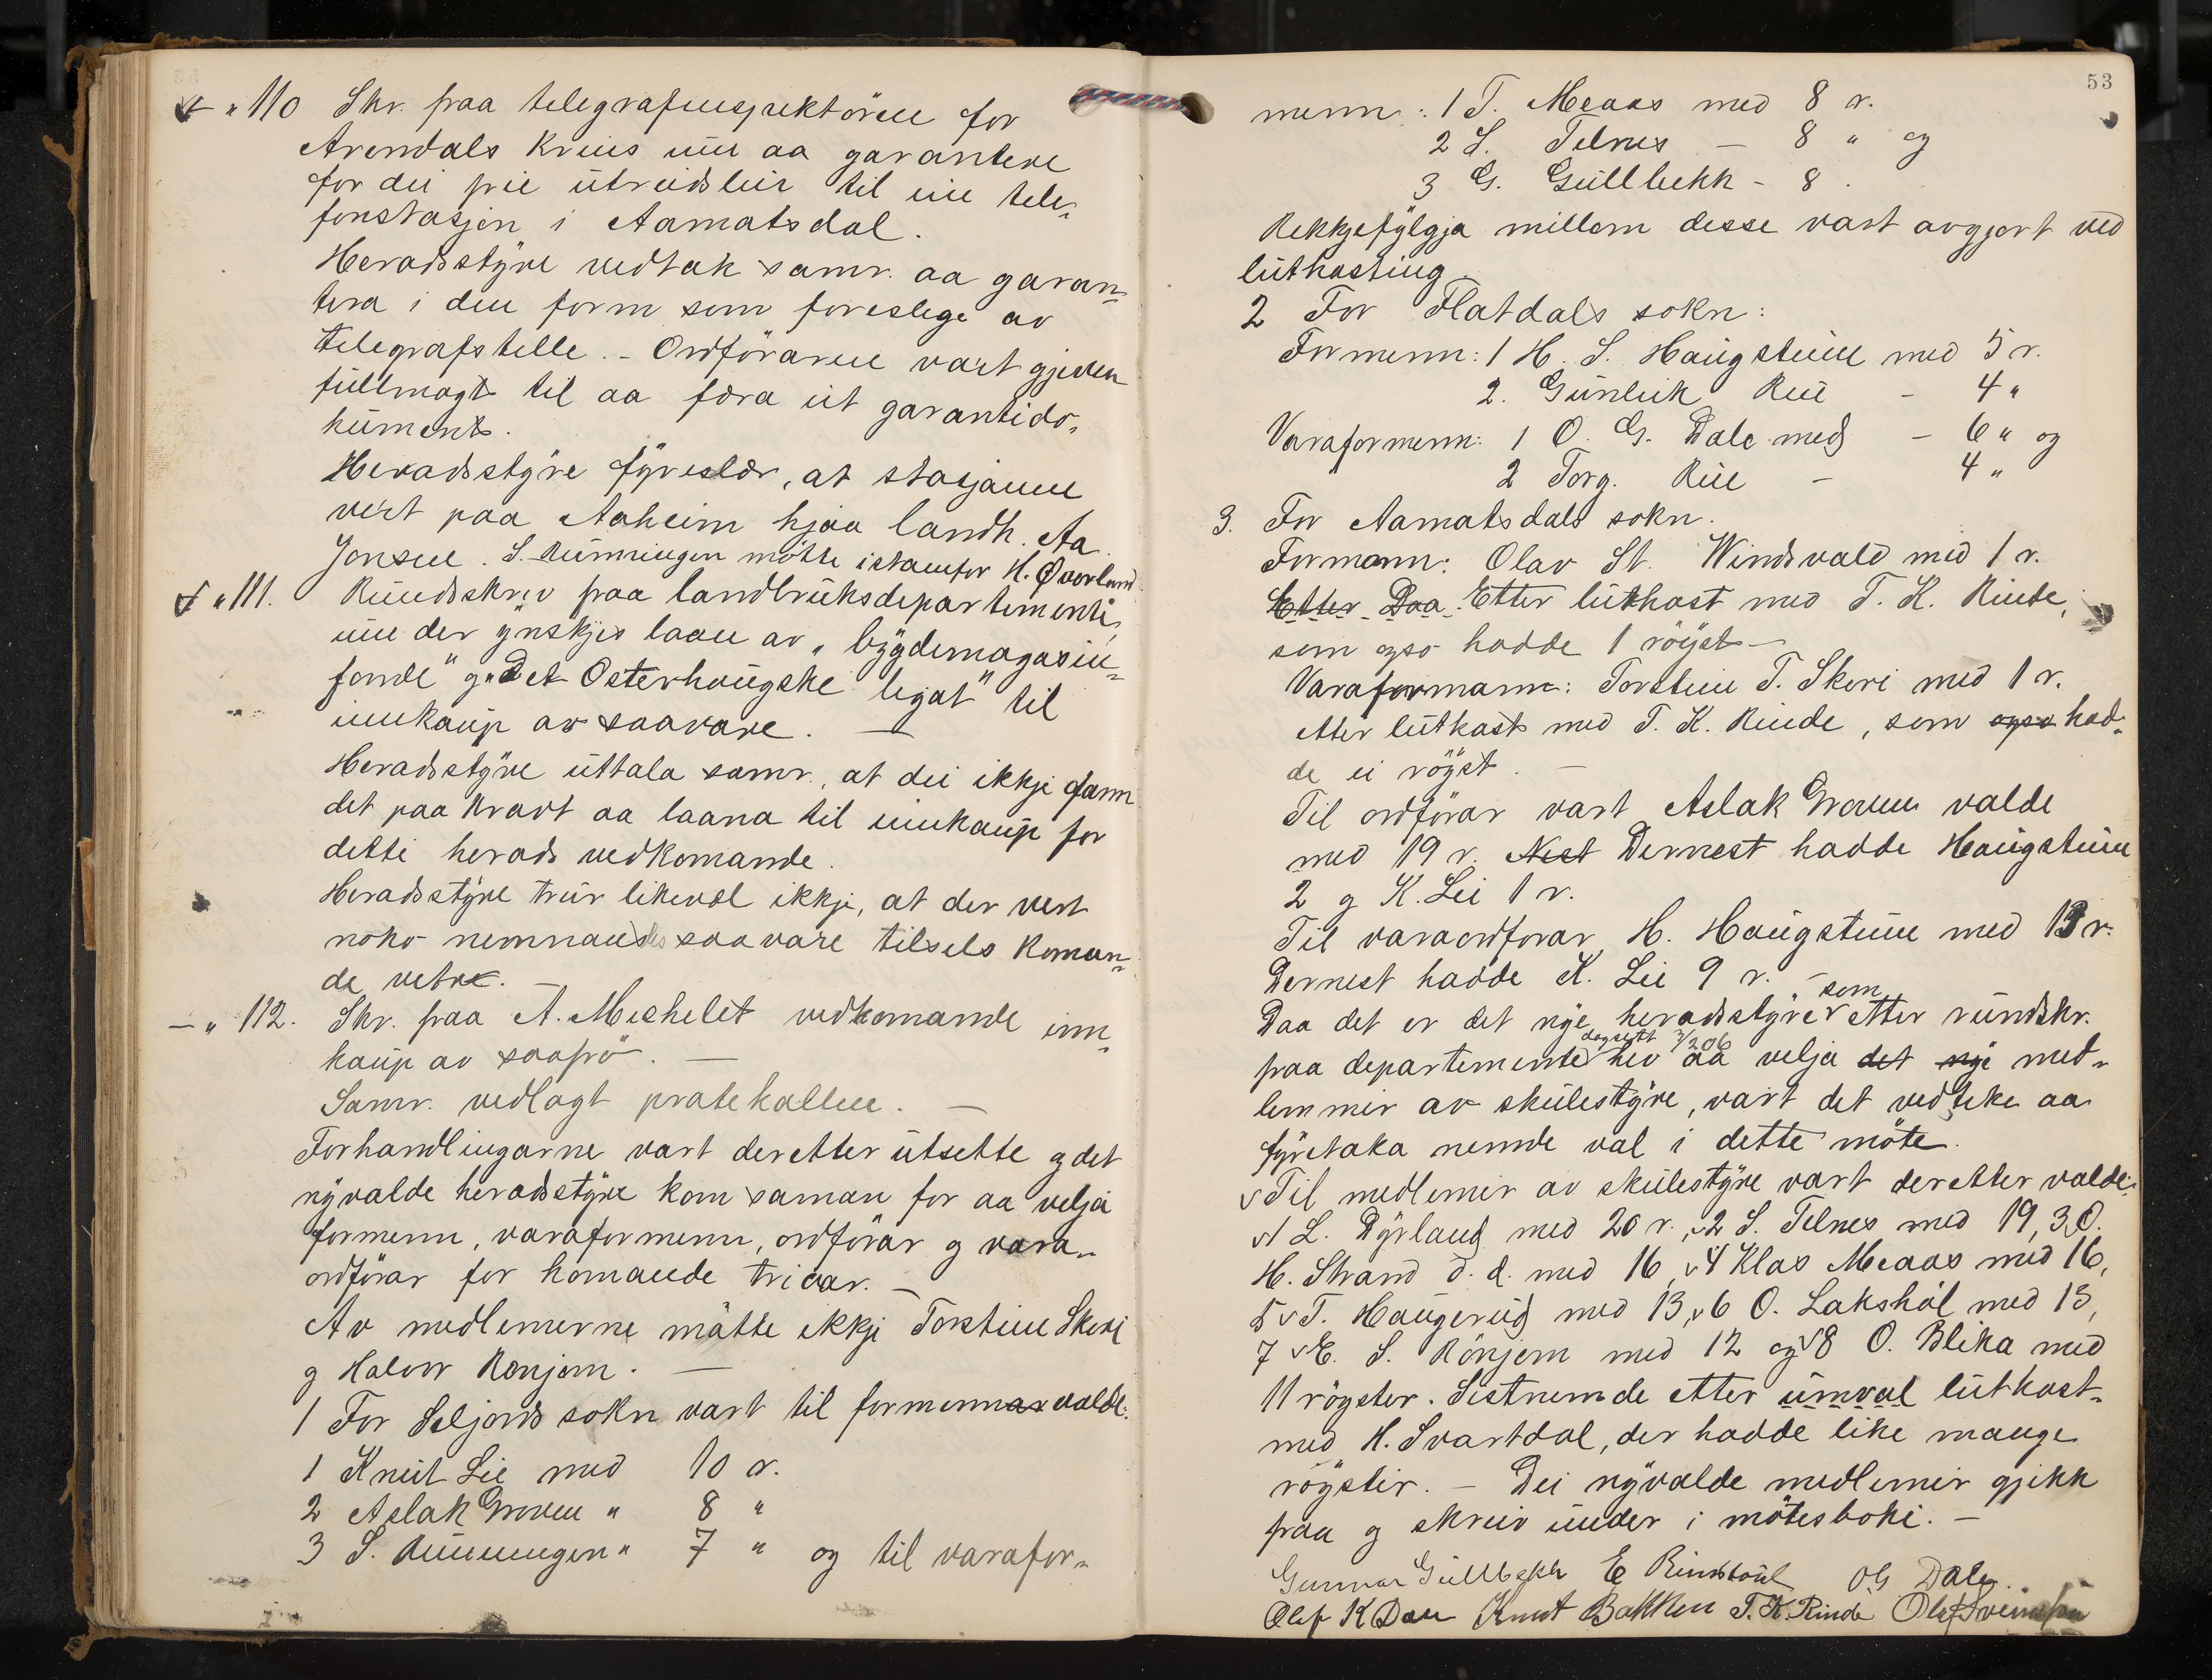 „ 110 Skr. fraa telegrafinspektören for
Arendals Krins um aa garantere
for dei frie utreidslur til ein tele-
fonstasjon i Aamatsdal.
Heradsstyre vedtok samr. aa garan-
tera i den form som foreslege av
telegrafstelle. – Ordföraren vart gjeven
fullmagt til aa fora ut garantido-
kument.
Heradsstyre fyreslær, at stasjonen
vert paa Aaheim hjaa landh. Aa.
Jonsen. S. Runningen mötte istaenfor H. Øverland.
„ 111. Rundskriv fraa landbruksdepartementi,
um der ynskjes laan av „bygdemagasin-
fonde" og „Det Osterhaugske legat" til
innkaup av saavare. —
Heradsstyre uttala samr., at dei ikkje fann
det paa kravt aa laana til innkaup for
detti herads vedkomande.
Heradsstyre trur likevel ikkje, at der vert
noko nemnande saavare tilsels koman-
de vetre. —
– „ 112. Skr. fraa A. Michelet vedkomande inn-
kaup av saafrö. —
Samr. vedlagt protokollen. —
Forhandlingarne vart deretter utsette og det
nyvalde heradsstyre kom saman for aa velja
formenn, varaformenn, ordförar og vara-
ordförar for komande triaar. —
Av medlemerne mötte ikkje Torstein Skori
og Halvor Ronjom. —
1 For Seljords sokn vart til formenn valde:
1 Knut Lie med 10 r.
2 Aslak Groven „ 8 „
3 S. Runningen „ 7 „ og til varafor-
53
menn: 1 T. Meaas med 8 r.
2 S. Telnes – 8 „ og
3 G. Gullbekk – 8.
Rekkjefylgja millom desse vart avgjort ved
lutkasting.
2 For Flatdals sokn:
Formenn: 1 H. S. Haugstuiu med 5 r.
2. Gunleik Rui – 4 „
Varaformenn: 1 O. G. Dale med – 6 „ og
2 Torg. Rue – 4 „
3. For Aamatsdals sokn.
Formann: Olav St. Windsvald med 1 r.
Etter Daa Etter lutkast med T. K. Rinde,
som ogso hadde 1 röyst –
Varaformann: Torstein T. Skori med 1 r.
etter lutkast med T. K. Rinde, som ogso had-
de ei röyst. —
Til ordförar vart Aslak Groven valde
med 19 r. Nest Dernest hadde Haugstuiu
2 og K. Lei 1 r.
Til varaordförar H. Haugstuiu med 13 r.
Dernest hadde K. Lei 9 r. –
Daa det er det nye heradsstyre som etter rundskr.
fraa departemente dagsett 3/206 hev aa velja det nye med-
lemmir av skulestyre, vart det vedteke aa
fyretaka nemde val i dette möte.
Til medlemir av skulestyre vart deretter valde:
1 L. Dyrland med 20 r., 2 S. Telnes med 19, 3 O.
H. Strand d. d. med 16, 4 Klas Meaas med 16,
5 T. Haugerud med 13, 6 O. Lakshöl med 13,
7 E. S. Rönjom med 12 og 8 O. Blika med
11 röyster. Sistnemde etter umval lutkast-
med H. Svartdal, der hadde like mange
röystir. – Dei nyvalde medlemir gjikk
fraa og skreiv under i mötesboki. –
Gunnar Gullbekk E Rindboul OG Dale
Olef K Dau Knut Bakken T. K. Rinde Olef Sveinson